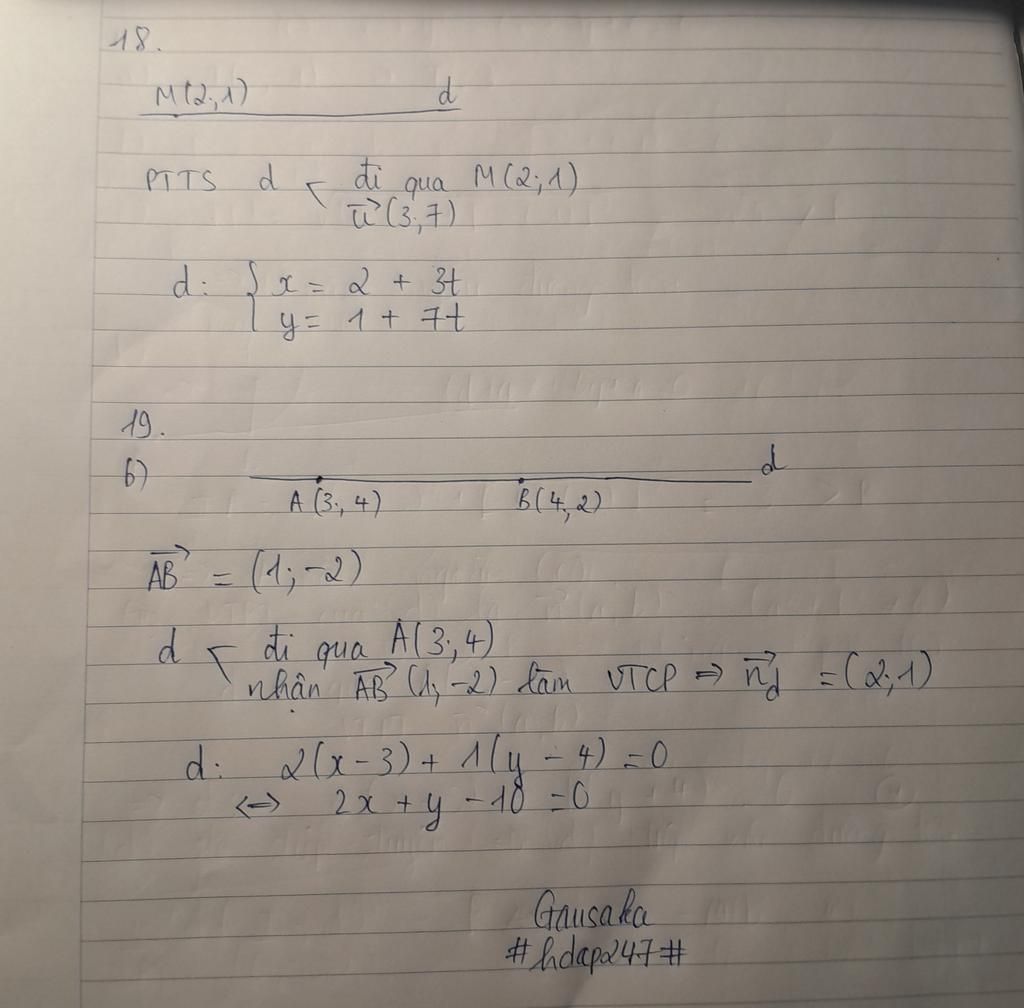 18.
M(2;1) d
PTTS d < đi qua M(2;1)
u⃗(3;7)
d: { x = 2 + 3t
y = 1 + 7t
19.
b) d
A(3;4) B(4;2)
AB⃗ = (1;-2)
d < đi qua A(3;4)
nhận AB⃗(1;-2) làm VTCP ⇒ n⃗d = (2;1)
d: 2(x-3) + 1(y-4) = 0
⇔ 2x + y - 10 = 0
Gausaka
#hdap247#